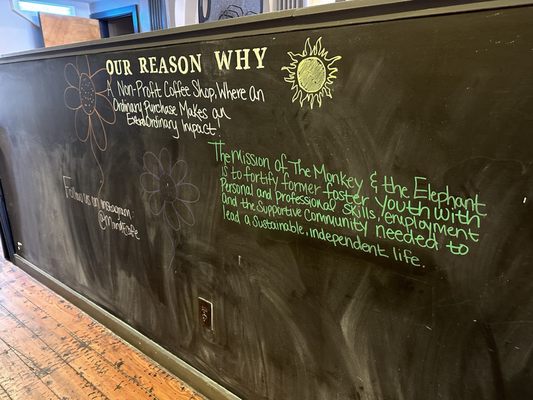 OUR REASON WHY
A Non-Profit Coffee Shop, Where An
Ordinary Purchase Makes an
ExtraOrdinary Impact!
The Mission of The Monkey & the Elephant
is to fortify former foster Youth with
Personal and Professional Skills, employment
and the Supportive Community needed to
lead a Sustainable, independent life.
Follow us on Instagram